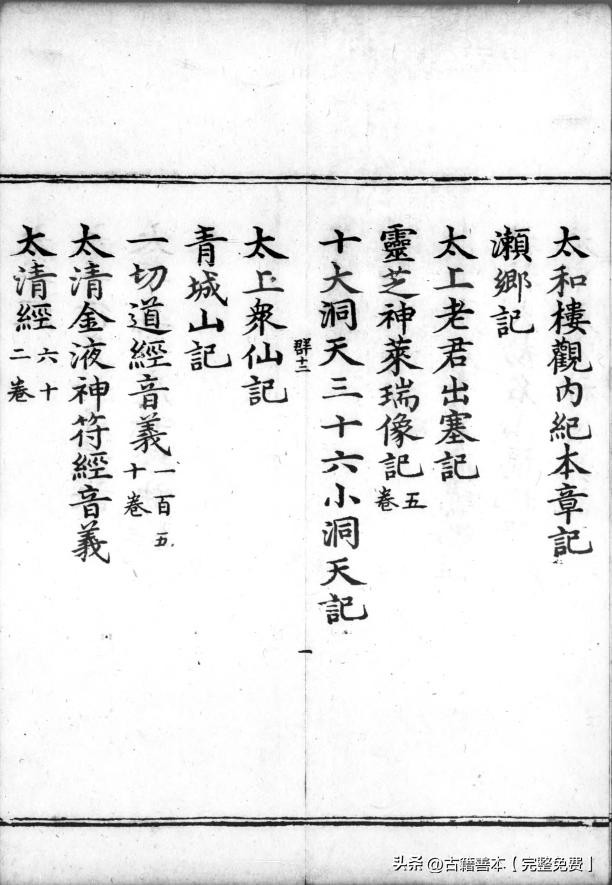 太和樓觀內紀本章記
瀨鄉記
太上老君出塞記
靈芝神萊瑞像記五卷
十大洞天三十六小洞天記
群十二
一
太上衆仙記
青城山記
一切道經音義一百五十卷
太清金液神符經音義
太清經六十二卷
头条@古籍善本【完整免费】